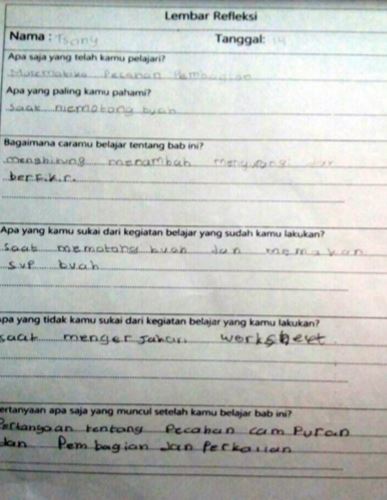 Lembar Refleksi
Nama : Tsany Tanggal:
Apa saja yang telah kamu pelajari?
Matematika Pecahan Pembagian
Apa yang paling kamu pahami?
Saat memotong buah
Bagaimana caramu belajar tentang bab ini?
menghitung menambah mengurangi dan
berfikir.
Apa yang kamu sukai dari kegiatan belajar yang sudah kamu lakukan?
Saat memotong buah dan memakan
sup buah
apa yang tidak kamu sukai dari kegiatan belajar yang kamu lakukan?
saat mengerjakan worksheet
ertanyaan apa saja yang muncul setelah kamu belajar bab ini?
Pertanyaan tentang Pecahan camPuran
dan Pembagian dan Perkalian